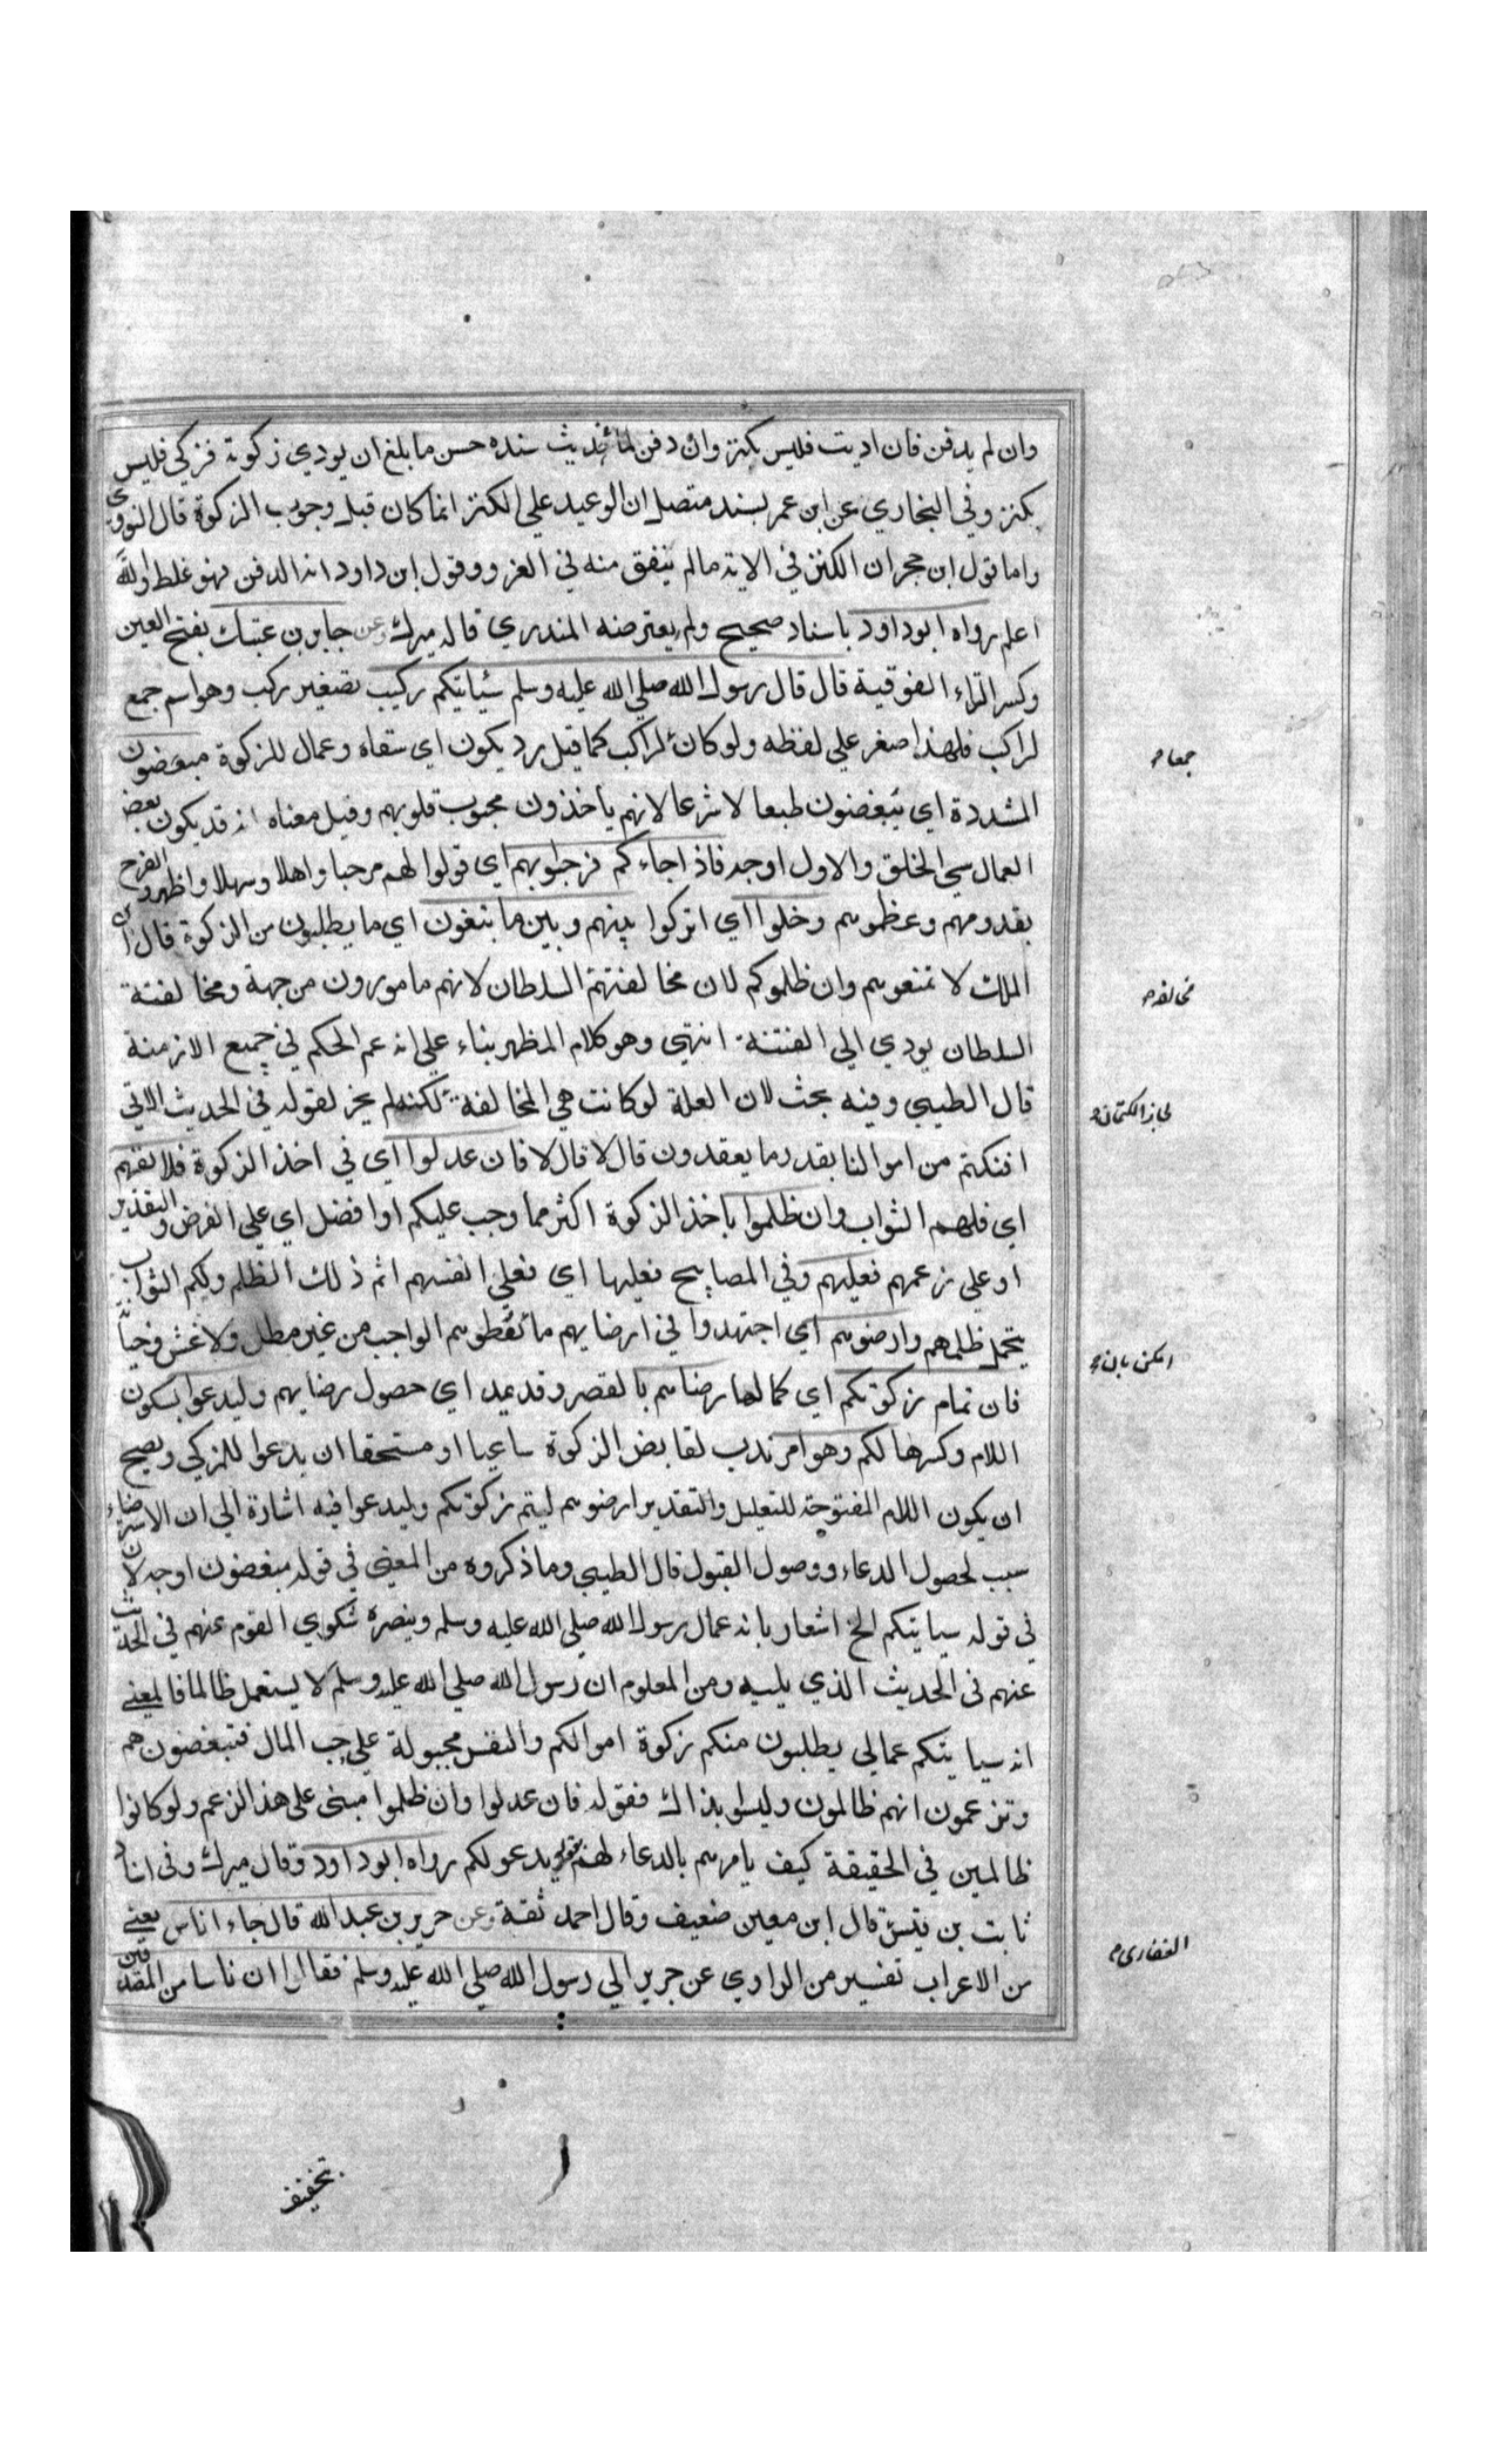 وان لم يدفن فان اديت فليس بكنز وان دفن لما حديث سنده حسن ما بلغ ان يودي زكوته فزكي فليس
بكنز وفي البخاري عن ابن عمر بسند متصل ان الوعيد علي الكنز انما كان قبل وجوب الزكوة قال النووي
واما قول ابن جحران الكنز في الاية مالم ينفق منه في الغزو وقول ابن داود انه الدفن فهو غلط والله
اعلم رواه ابو داود باسناد صحيح ولم يعترضه المنذري قاله ميرك وعن جابر بن عتيك بفتح العين
وكسر التاء الفوقية قال قال رسول الله صلي الله عليه وسلم سياتيكم ركيب تصغير ركب وهو اسم جمع
لراكب فلهذا صغر علي لفظه ولو كان لراكب كما قيل رد يكون اي سقاه وعمال للزكوة مبغضون
جمعا
المشددة اي يبغضون طبعا لا شرعا لانهم ياخذون محبوب قلوبهم وقيل معناه انه قد يكون بعض
العمال سي الخلق والاول اوجه فاذا جاءكم فرحبوا بهم اي قولوا لهم مرحبا واهلا وسهلا واظهروا الفرح
بقدومهم وعظموهم وخلوا اي اتركوا بينهم وبين ما يبتغون اي ما يطلبون من الزكوة قال ابن
الملك لا تمنعوهم وان ظلموكم لان مخالفتهم السلطان لانهم مامورون من جهة ومخالفتة
مخالفه
السلطان يودي الي الفتنة انتهى وهو كلام المظهر بناء علي انه عم الحكم في جميع الازمنة
قال الطيبي وفيه بحث لان العلة لو كانت هي المخالفة لكنه لم يجز لقوله في الحديث الاتي
لجاز الكتمان
افنكتم من اموالنا بقدر ما يعتدون قال لا قال لا فان عدلوا اي في اخذ الزكوة فلانفسهم
اي فلهم الثواب وان ظلموا باخذ الزكوة اكثر مما وجب عليكم او افضل اي علي الفرض والتقدير
او علي زعمهم فعليهم وفي المصابيح فعليها اي فعلي انفسهم اثم ذلك الظلم ولكم الثواب
بتحمل ظلمهم وارضوهم اي اجتهدوا في ارضايهم ما تعطوهم الواجب من غير مطل ولا غش وخيانة
امكن بان
فان تمام زكوتكم اي كمالها رضاهم بالقصر وقد يمد اي حصول رضايهم وليدعوا بسكون
اللام وكسرها لكم وهو امر ندب لقابض الزكوة ساعيا او مستحقا ان يدعوا للمزكي ويصح
ان يكون اللام المفتوحة للتعليل والتقدير ارضوهم ليتم زكوتكم وليدعوا فيه اشارة الي ان الارضاء
سبب لحصول الدعاء ووصول القبول قال الطيبي وما ذكروه من المعني في قوله مبغضون اوجه لان
في قوله سياتيكم الخ اشعار بانه عمال رسول الله صلي الله عليه وسلم وينصره شكوي القوم عنهم في الحديث
عنهم في الحديث الذي يليه ومن المعلوم ان رسول الله صلي الله عليه وسلم لا يستعمل ظالما فالمعني
انه سياتيكم عمالي يطلبون منكم زكوة اموالكم والنفس مجبولة علي حب المال فتبغضون هم
وتزعمون انهم ظالمون وليسوا بذاك فقوله فان عدلوا وان ظلموا مبني علي هذا الزعم ولو كانوا
ظالمين في الحقيقة كيف يامرهم بالدعاء لهم بقوله يدعو لكم رواه ابو داود وقال ميرك وفي اسناد
ثابت بن قيس قال ابن معين ضعيف وقال احمد ثقة وعن جرير بن عبد الله قال جاء اناس يعني
الغفاري
من الاعراب تفسير من الراوي عن جرير الي رسول الله صلي الله عليه وسلم فقالوا ان ناسا من المصدقين
بتخفيف